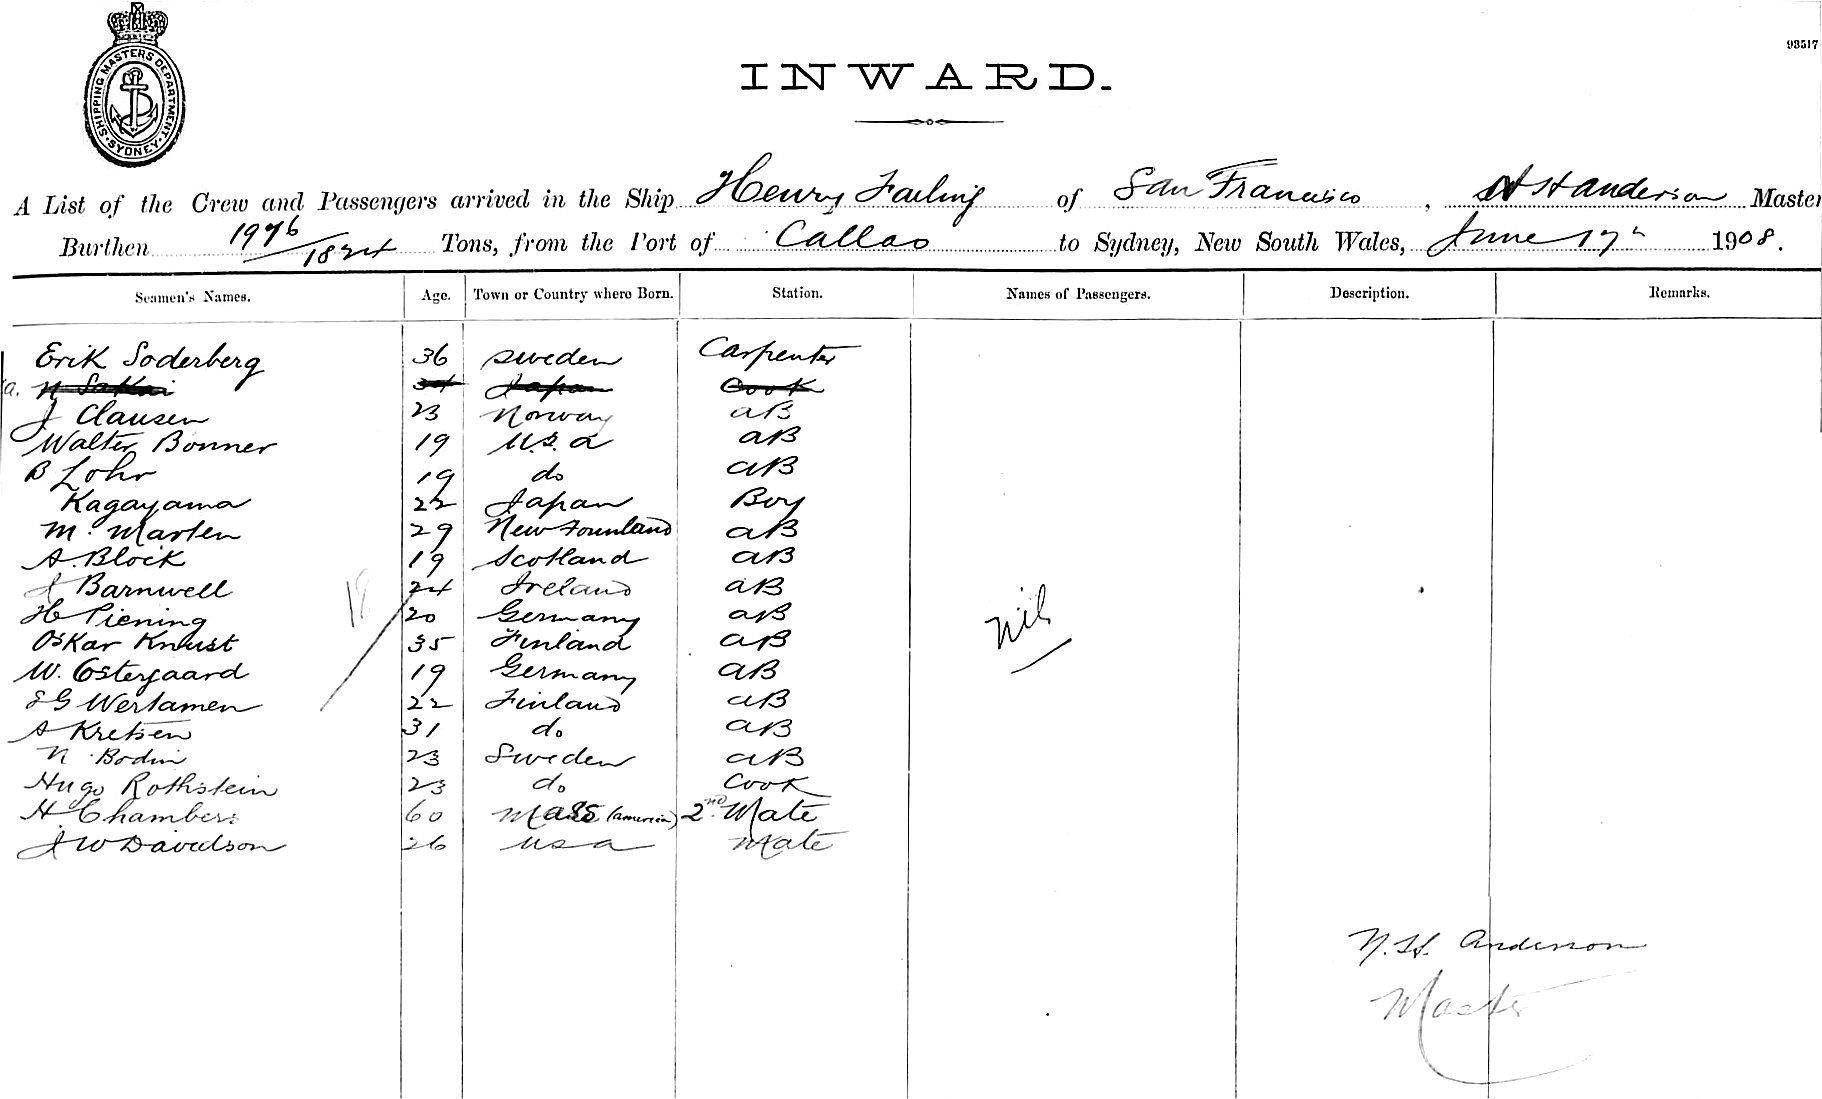 SHIPPING MASTERS DEPARTMENT · SYDNEY ·
93517
INWARD.
A List of the Crew and Passengers arrived in the Ship Henry Failing of San Francisco, H Anderson Master
Burthen 1976/1824 Tons, from the Port of Callao to Sydney, New South Wales, June 17th 1908.
Seamen's Names. Age. Town or Country where Born. Station. Names of Passengers. Description. Remarks.
Erik Soderberg 36 Sweden Carpenter
a. N Sakai 34 Japan Cook
J Clausen 23 Norway aB
Walter Bonner 19 U.S.a aB
B Lohr 19 do aB
Kagayama 22 Japan Boy
M. Marten 29 New Founland aB
A. Block 19 Scotland aB
J Barnwell 24 Ireland aB
18
H Piening 20 Germany aB
Nil
Oskar Knust 35 Finland aB
W. Ostergaard 19 Germany aB
E G Wertamen 22 Finland aB
A Kretsen 31 do aB
N. Bodin 23 Sweden aB
Hugo Rothstein 23 do Cook
H Chambers 60 Mass (america) 2nd Mate
J W Davidson 26 usa Mate
N. H. Anderson
Master